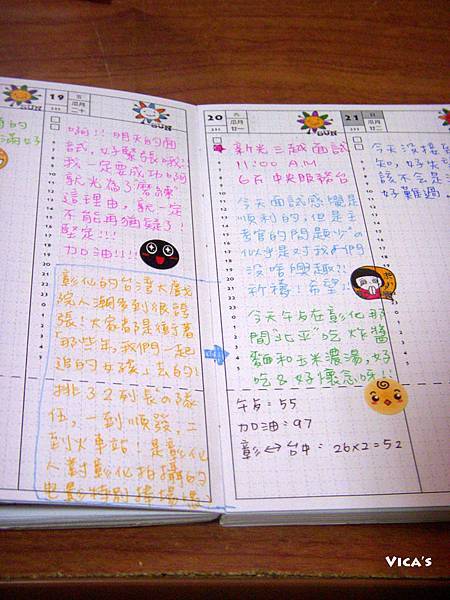 19 五
瓜月
二十
SUN
啊!!! 明天的面
試,好緊張哦!!
我一定要成功啊
就光為了磨練
這理由,就一定
不能再猶疑了!
堅定!!!
加油!!!!
彰化的台灣大戲
院人潮多到很誇
張!大家都是衝著
"那些年,我們一起
追的女孩"去的!
排了2列長的隊
伍,一到順發,二
到火車站!是彰化
人對彰化拍攝的
電影特別捧場
20 六
瓜月
廿一
新光三越面試
11:00 A.M
6F 中央服務台
今天面試感覺是
順利的,但是主
考官的問題少的
似乎是對我們
沒啥興趣?!
祈禱!希望!!
今天午去在彰化那
間"北平"吃炸醬
麵和玉米濃湯,好
吃&好懷念呀!!
午: 55
加油:97
彰↔台中: 26x2=52
21 日
瓜月
廿二
SUN
今天沒接
知,好失
該不會是
好難過
VICA's